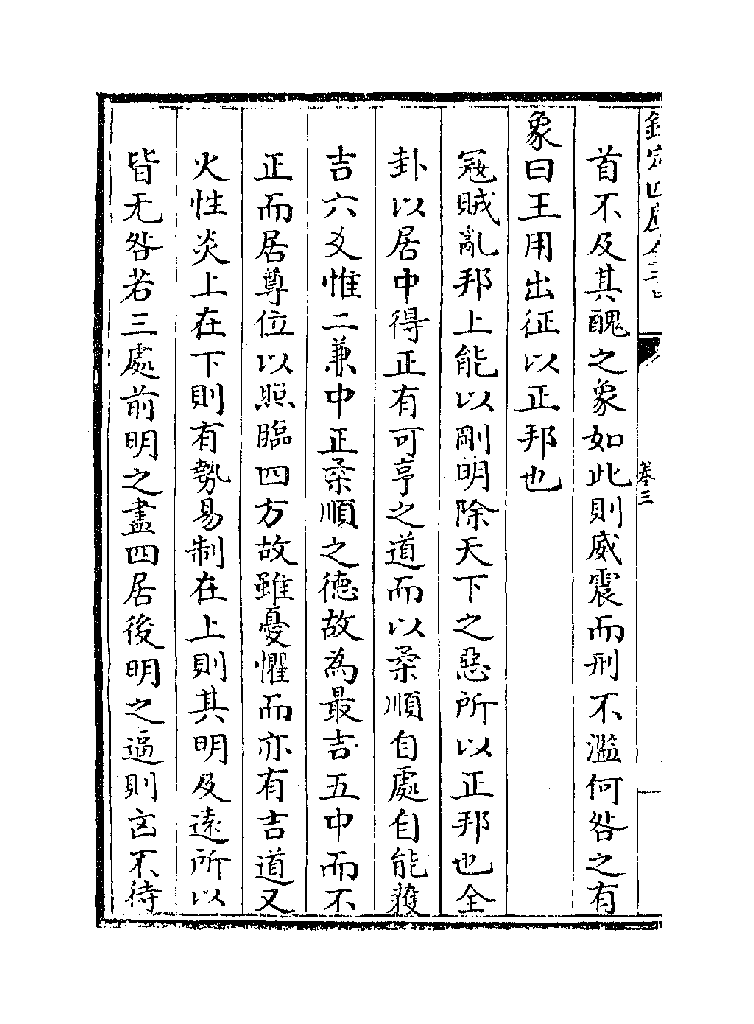 欽定四庫全書
卷三
首不及其醜之象如此則威震而刑不濫何咎之有
象曰王用出征以正邦也
冦賊亂邦上能以剛明除天下之惡所以正邦也全
卦以居中得正有可亨之道而以柔順自處自能獲
吉六爻惟二兼中正柔順之德故為最吉五中而不
正而居尊位以照臨四方故雖憂懼而亦有吉道又
火性炎上在下則有勢易制在上則其明及遠所以
皆无咎若三處前明之盡四居後明之逼則凶不待